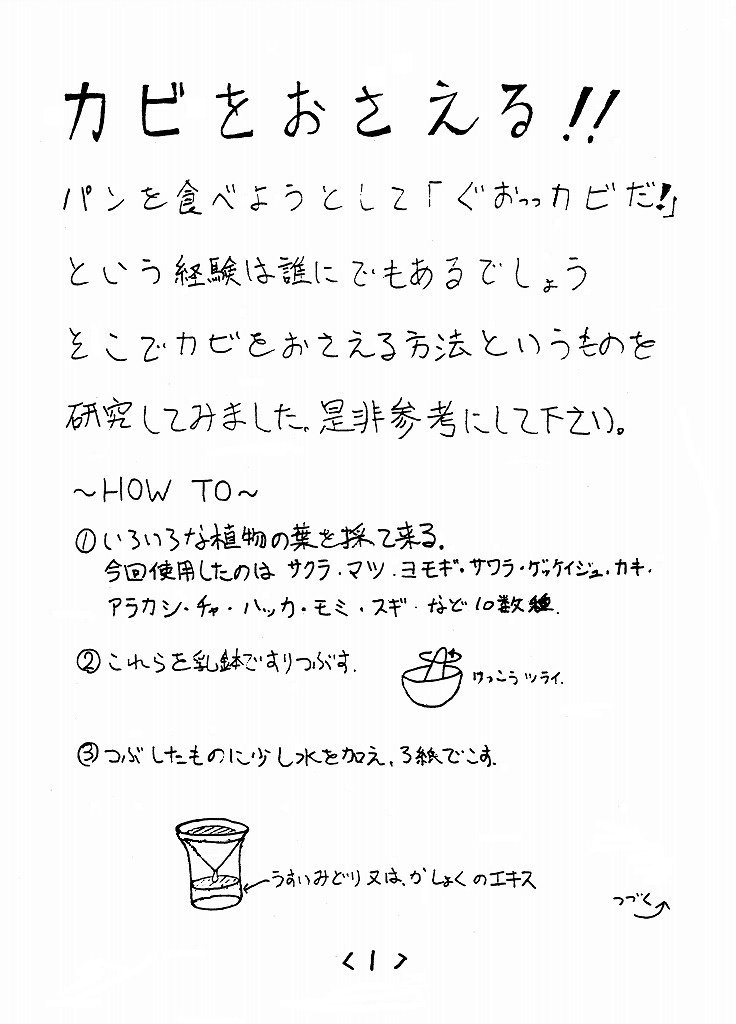 カビをおさえる!!
パンを食べようとして「ぐおっっカビだ!」
という経験は誰にでもあるでしょう
そこでカビをおさえる方法というものを
研究してみました。是非参考にして下さい。
~HOW TO~
①いろいろな植物の葉を採って来る。
今回使用したのは サクラ・マツ・ヨモギ・サワラ・ゲッケイジュ・カキ・
アラカシ・チャ・ハッカ・モミ・スギ・など10数種.
②これらを乳鉢ですりつぶす.
けっこうツライ.
③つぶしたものに少し水を加え、ろ紙でこす.
うすいみどり又は、かしょくのエキス
つづく
<1>